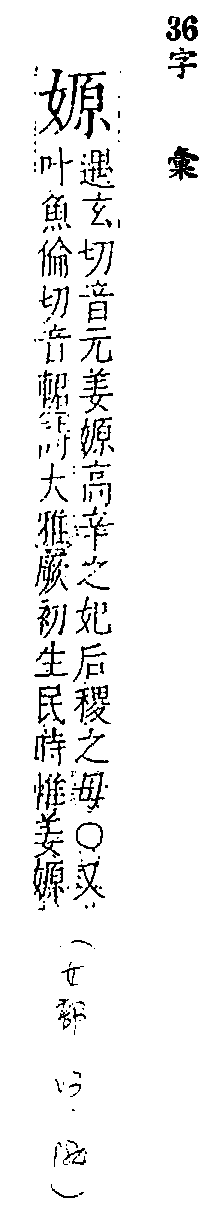 36字彙
嫄
遇玄切音元姜嫄高辛之妃后稷之母○又
叶魚倫切音輑詩大雅厥初生民時惟姜嫄
（女部